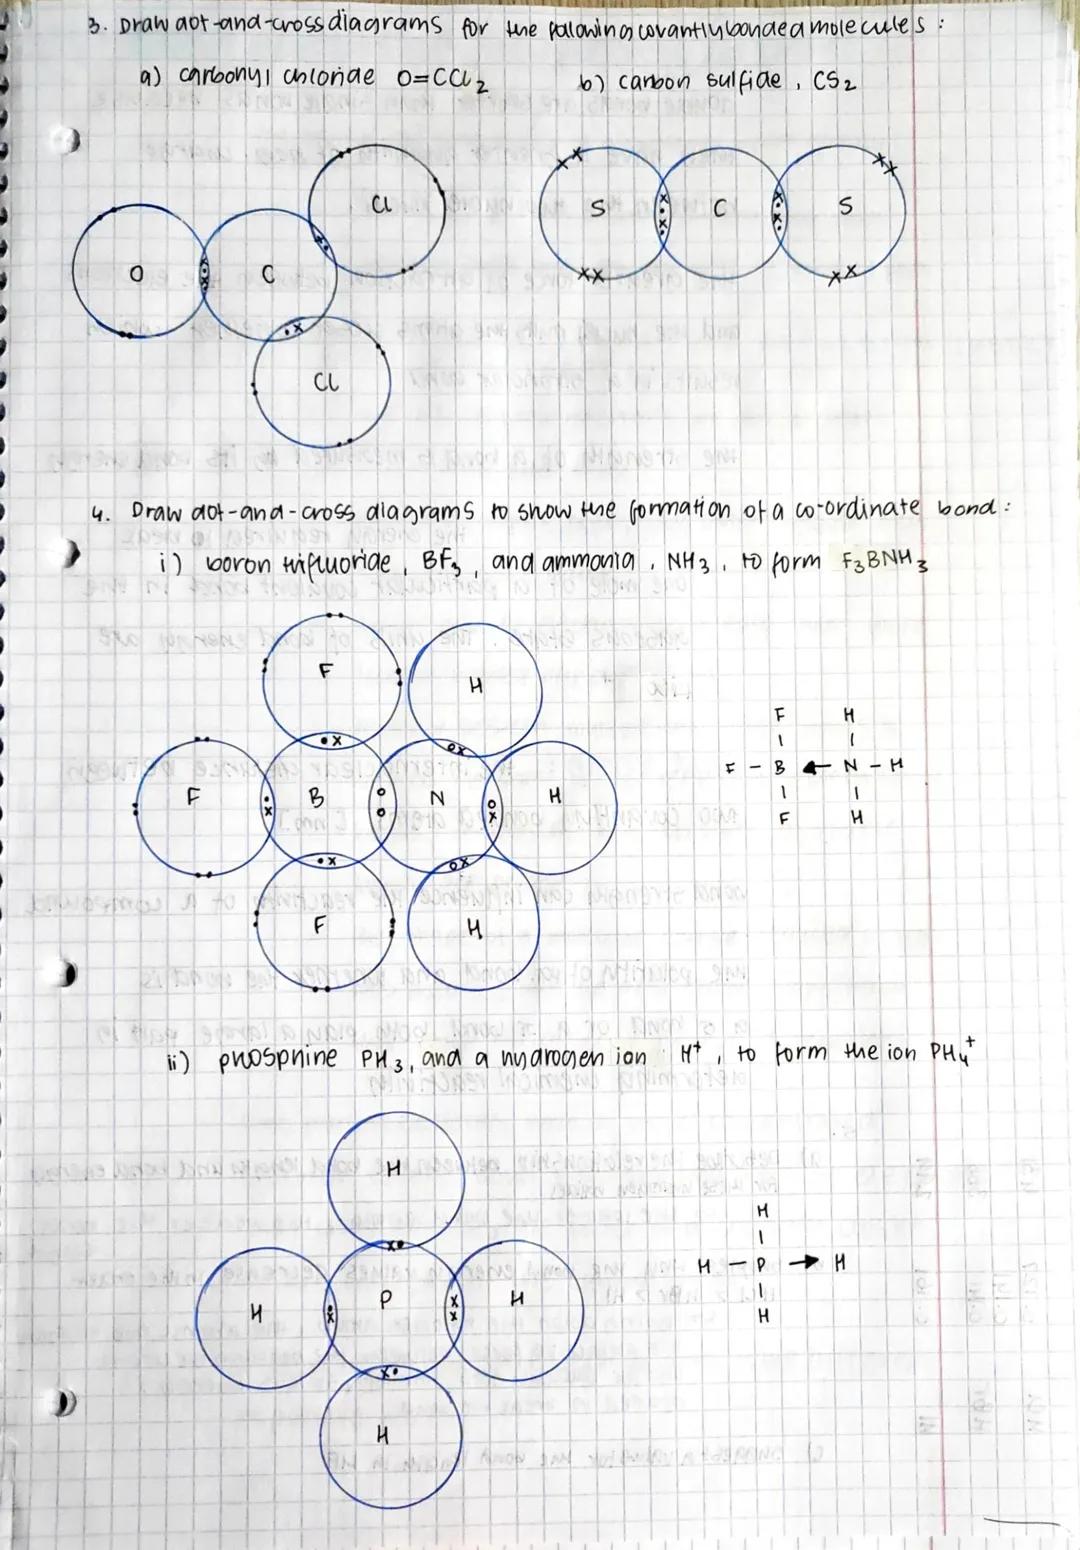 3. Draw dot-and-cross diagrams for the following covantly bonded molecules :
a) carbonyl chloride O=CCl2 b) carbon sulfide , CS2
Cl
S C S
O C
Cl
4. Draw dot-and-cross diagrams to show the formation of a co-ordinate bond :
i) boron trifluoride , BF3 , and ammonia , NH3 , to form F3BNH3
F H
F H
F B N H F - B ← N - H
F H
F H
ii) phosphine PH3, and a hydrogen ion H+ , to form the ion PH4+
H
H
H P H H - P → H
H
H